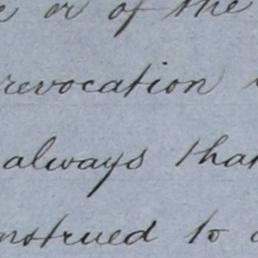 or of the
revocation
always that
nstrued to